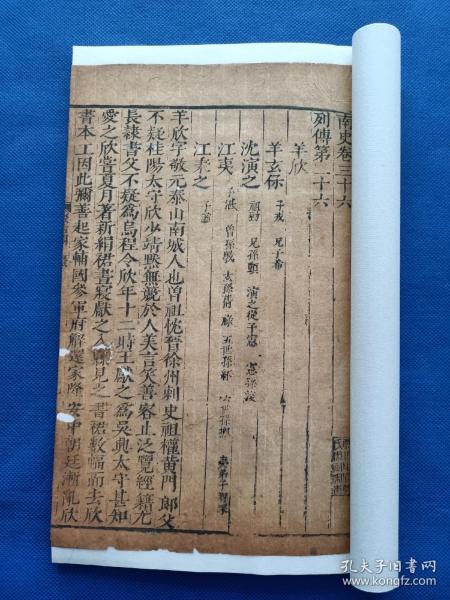 南史卷三十六
列傳第二十六
羊欣
羊玄保 子戎 兄子希
沈演之 子勃 兄孫顗 演之從子憲 憲孫浚
江夷 子湛 曾孫斆 玄孫蒨 祿 五世孫紑 六世孫總
江秉之 子謐
羊欣字敬元泰山南城人也曾祖忱晉徐州刺史祖權黃門郎父
不疑桂陽太守欣少靖默無競於人美言笑善容止汎覽經籍尤
長隸書父不疑為烏程令欣年十二時王獻之為吳興太守甚知
愛之欣嘗夏月著新絹裙晝寢獻之入縣見之書裙數幅而去欣
書本工因此彌善起家輔國參軍府解還家隆安中朝廷漸亂欣
孔夫子旧书网
www.kongfz.com